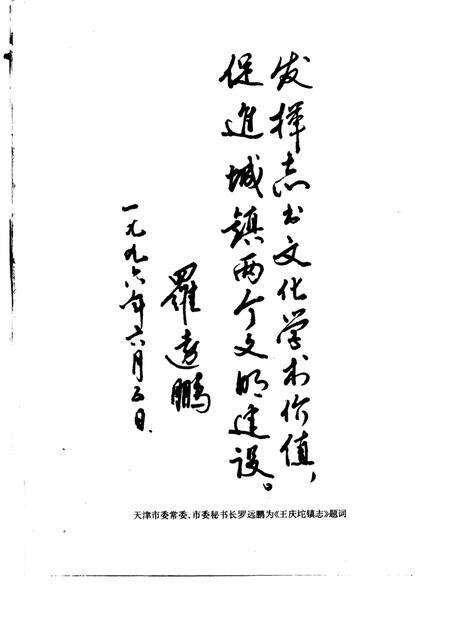 发挥志书文化学术价值，
促进城镇两个文明建设。
羅遠鵬
一九九六年六月三日.
天津市委常委、市委秘书长罗远鹏为《王庆坨镇志》题词